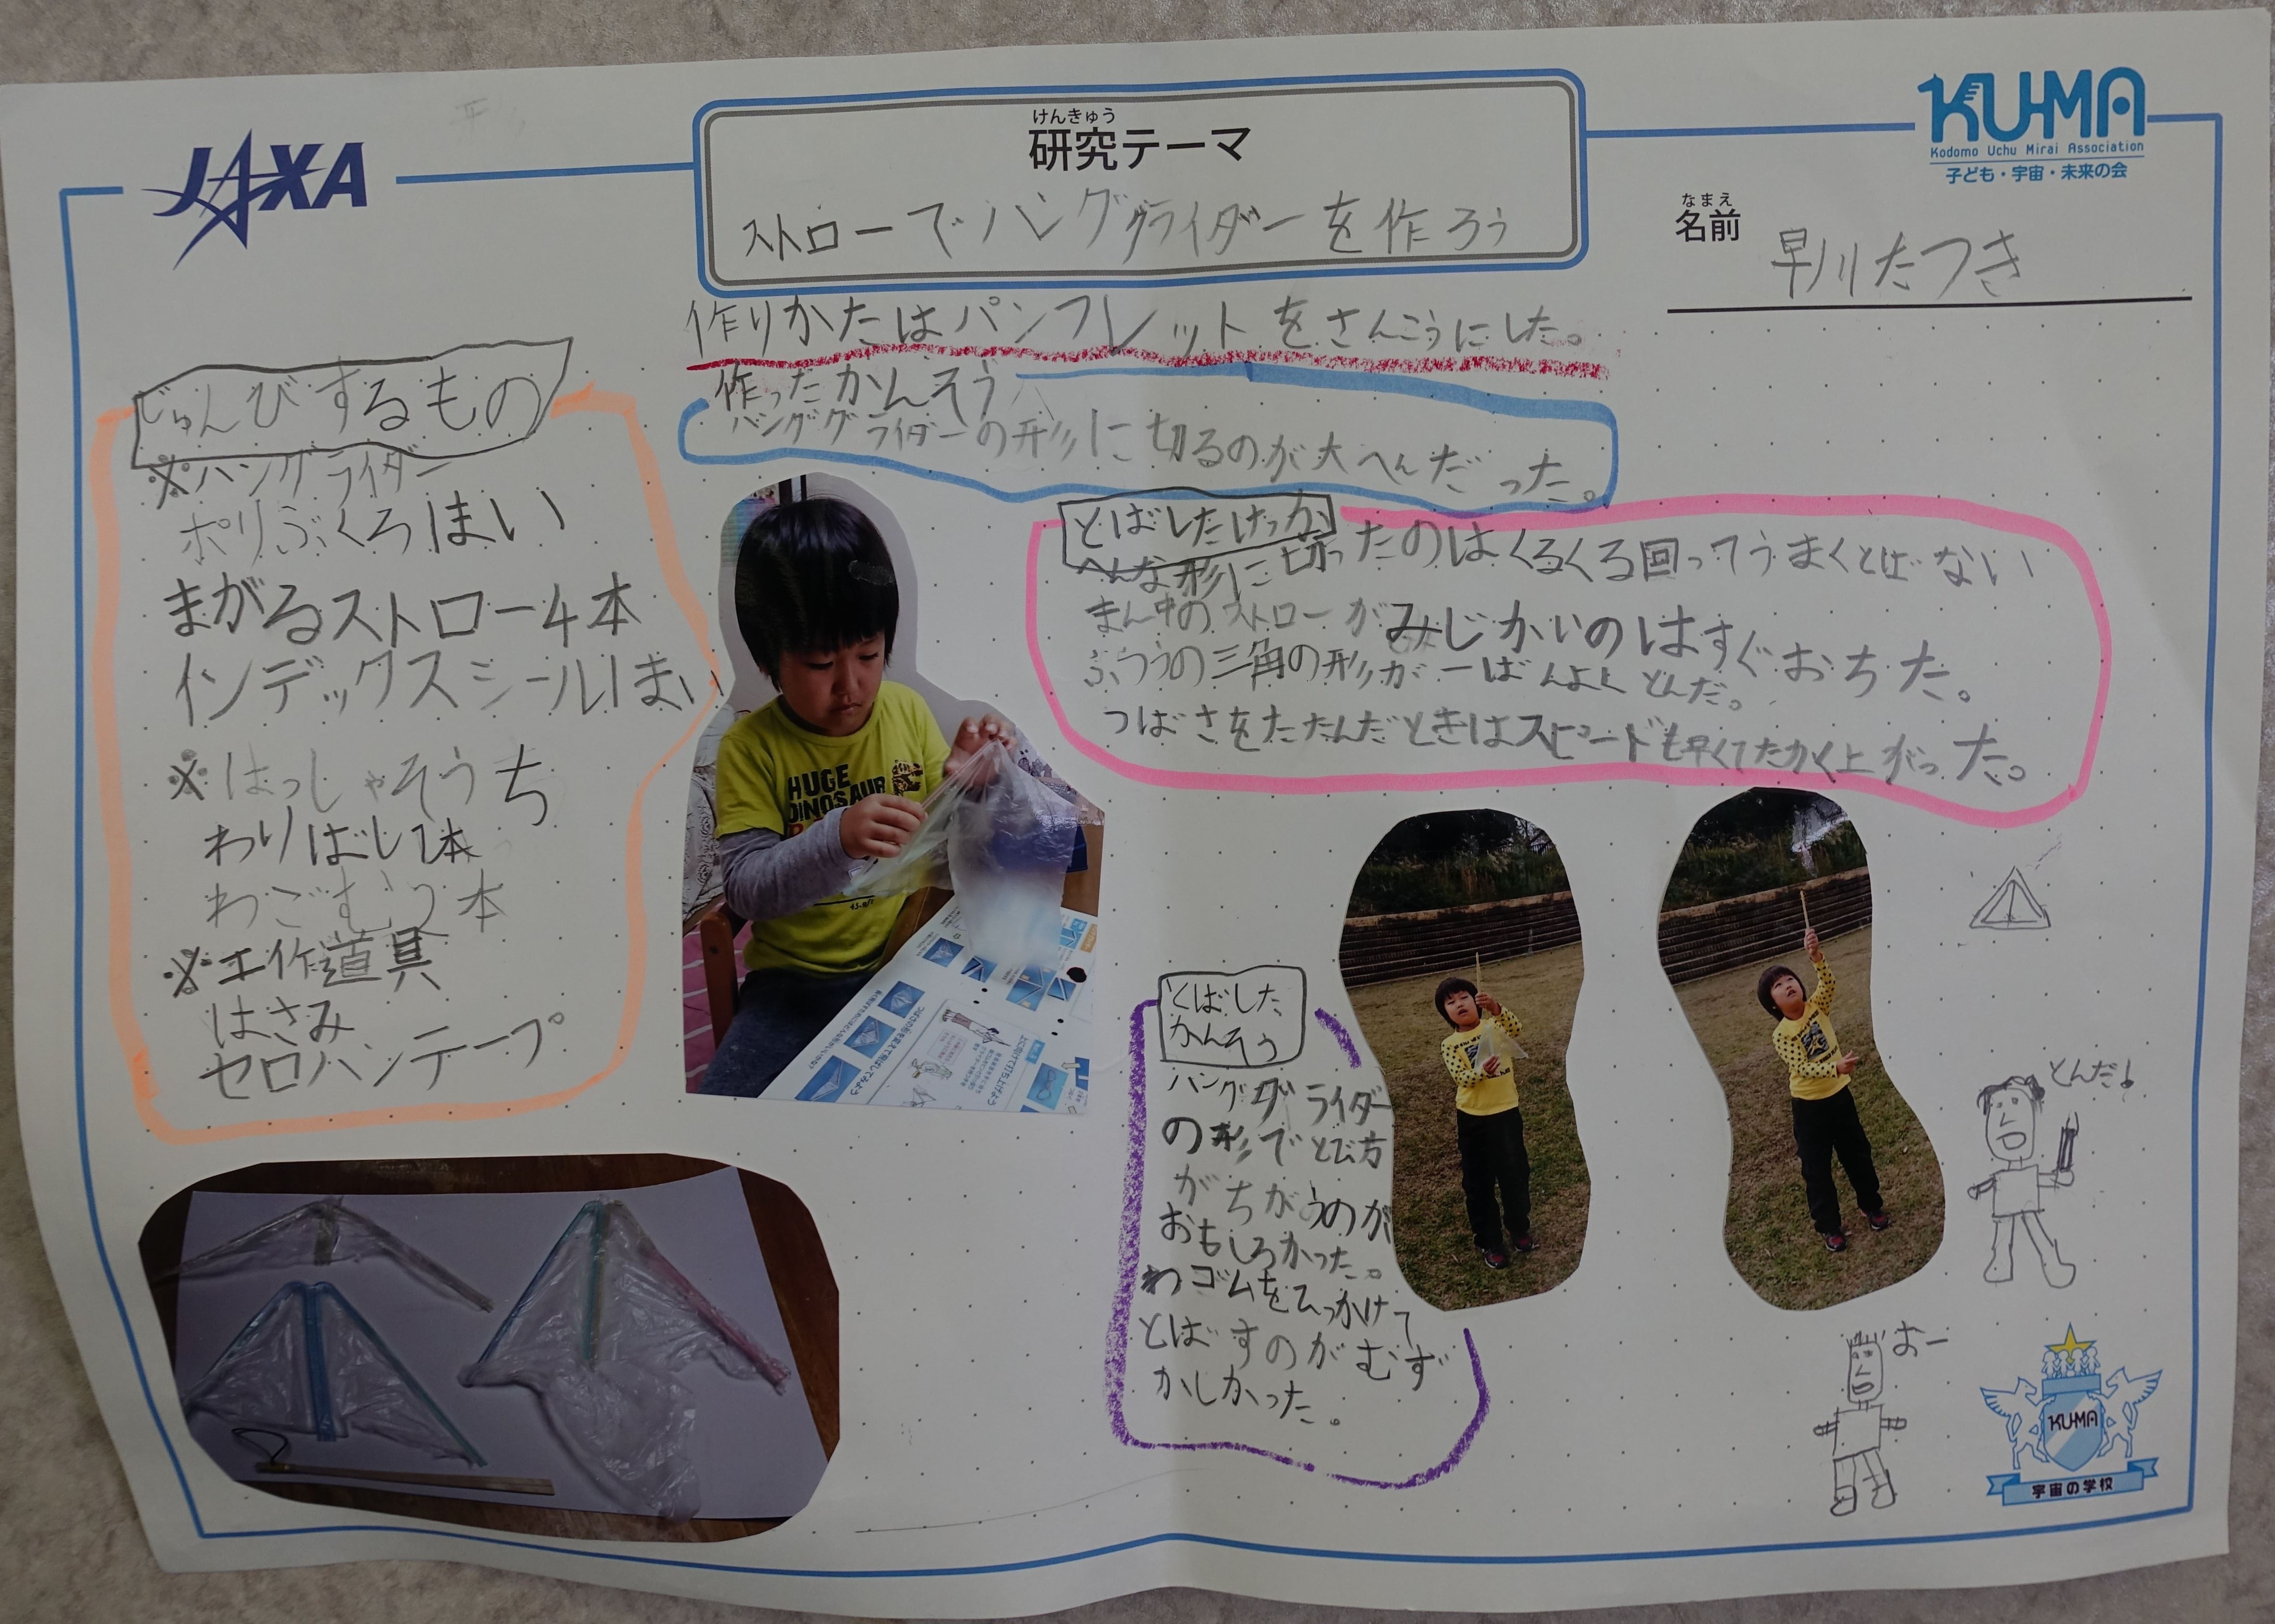 JAXA
けんきゅう
研究テーマ
ストローでハンググライダーを作ろう
KUMA
Kodomo Uchu Mirai Association
子ども・宇宙・未来の会
なまえ
名前
早川たつき
作りかたはパンフレットをさんこうにした。
作ったかんそう
ハンググライダーの形に切るのが大へんだった。
じゅんびするもの
※ハングライダー
ポリぶくろ1まい
まがるストロー4本
インデックスシール1まい
※はっしゃそうち
わりばし1本
わごむ2本
※工作道具
はさみ
セロハンテープ
とばしたけっか
へんな形に切ったのはくるくる回ってうまくとばない
まん中のストローがみじかいのはすぐおちた。
ふつうの三角の形が一ばんよくとんだ。
つばさをたたんだときはスピードも早くてたかく上がった。
HUGE
DINOSAUR
とばした
かんそう
ハンググライダー
の形でとび方
がちがうのが
おもしろかった。
わゴムをひっかけて
とばすのがむず
かしかった。
とんだ!
おー
KUMA
宇宙の学校